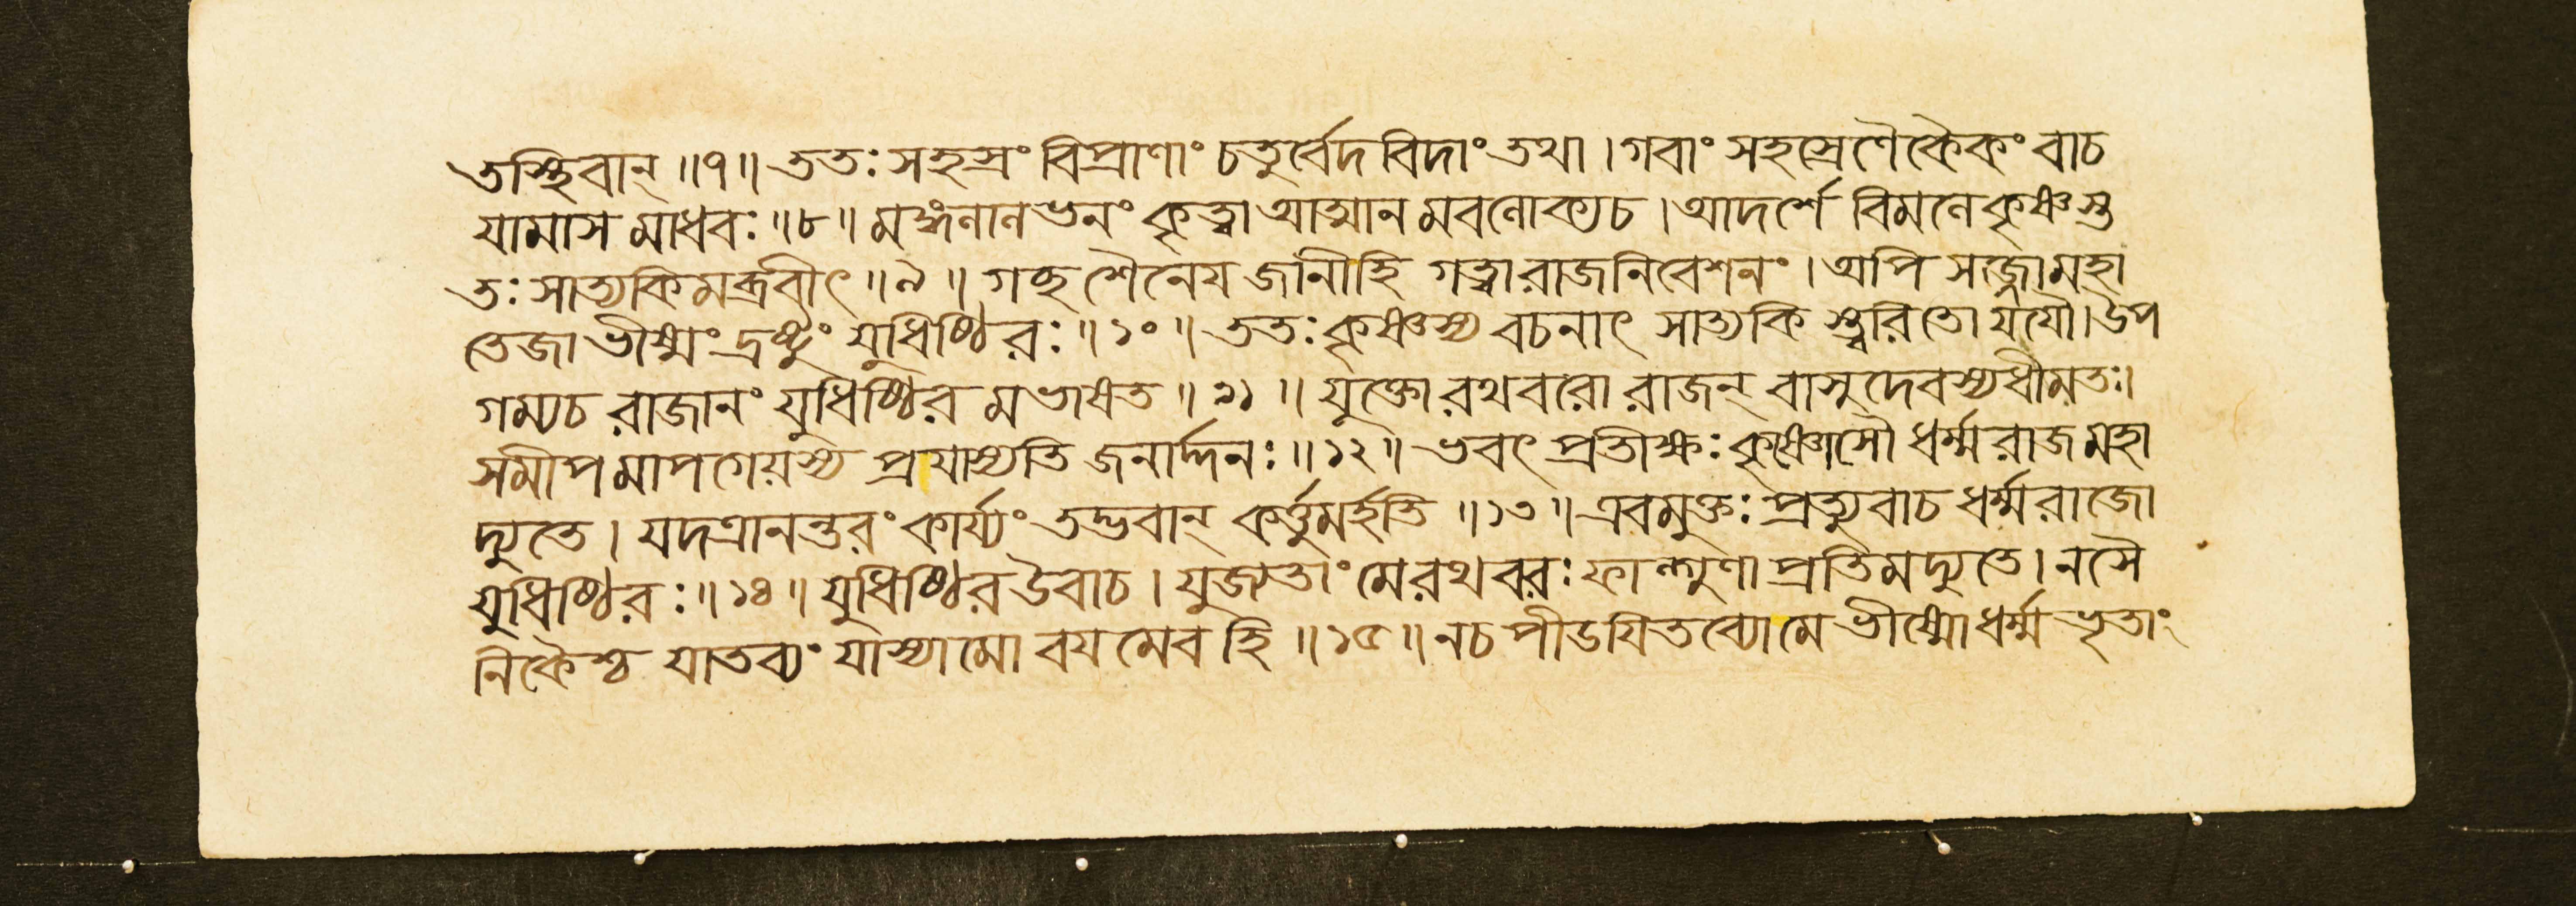 তস্থিবান্ ॥৭॥ ততঃ সহস্রং বিপ্রাণাং চতুর্বেদ বিদাং তথা । গবাং সহস্রেণৈকৈকং বাচ
যামাস মাধবঃ ॥৮॥ মঙ্গলানভনং কৃত্বা আত্মান মবলোক্যচ । আদর্শে বিমলে কৃষ্ণস্ত
তঃ সাত্যকিমব্রবীৎ ॥৯॥ গচ্ছ শৈনেয জানীহি গত্বা রাজনিবেশনং । অপি সজ্জোমহা
তেজা ভীষ্মং দ্রষ্টুং যুধিষ্ঠিরঃ ॥১০॥ ততঃ কৃষ্ণস্য বচনাৎ সাত্যকি স্ত্বরিতো যযৌ। উপ
গম্যচ রাজানং যুধিষ্ঠির মভাষত ॥১১॥ যুক্তো রথবরো রাজন্ বাসুদেবস্যধীমতঃ।
সমীপ মাপগেয়স্য প্রযাস্যতি জনার্দ্দনঃ ॥১২॥ ভবৎ প্রতীক্ষঃ কৃষ্ণোসৌ ধর্ম্মরাজ মহা
দ্যুতে । যদত্রানন্তরং কার্য্যং তদ্ভবান্ কর্ত্তুমর্হতি ॥১৩॥ এবমুক্তঃ প্রত্যুবাচ ধর্ম্মরাজো
যুধিষ্ঠিরঃ ॥১৪॥ যুধিষ্ঠির উবাচ । যুজ্যতাং মে রথবরঃ ফাল্গুণা প্রতিমদ্যুতে । নসৈ
নিকৈশ্চ যাতব্যং যাস্যামো বযমেব হি ॥১৫॥ নচ পীডযিতব্যোমে ভীষ্মোধর্ম্ম ভৃতাং